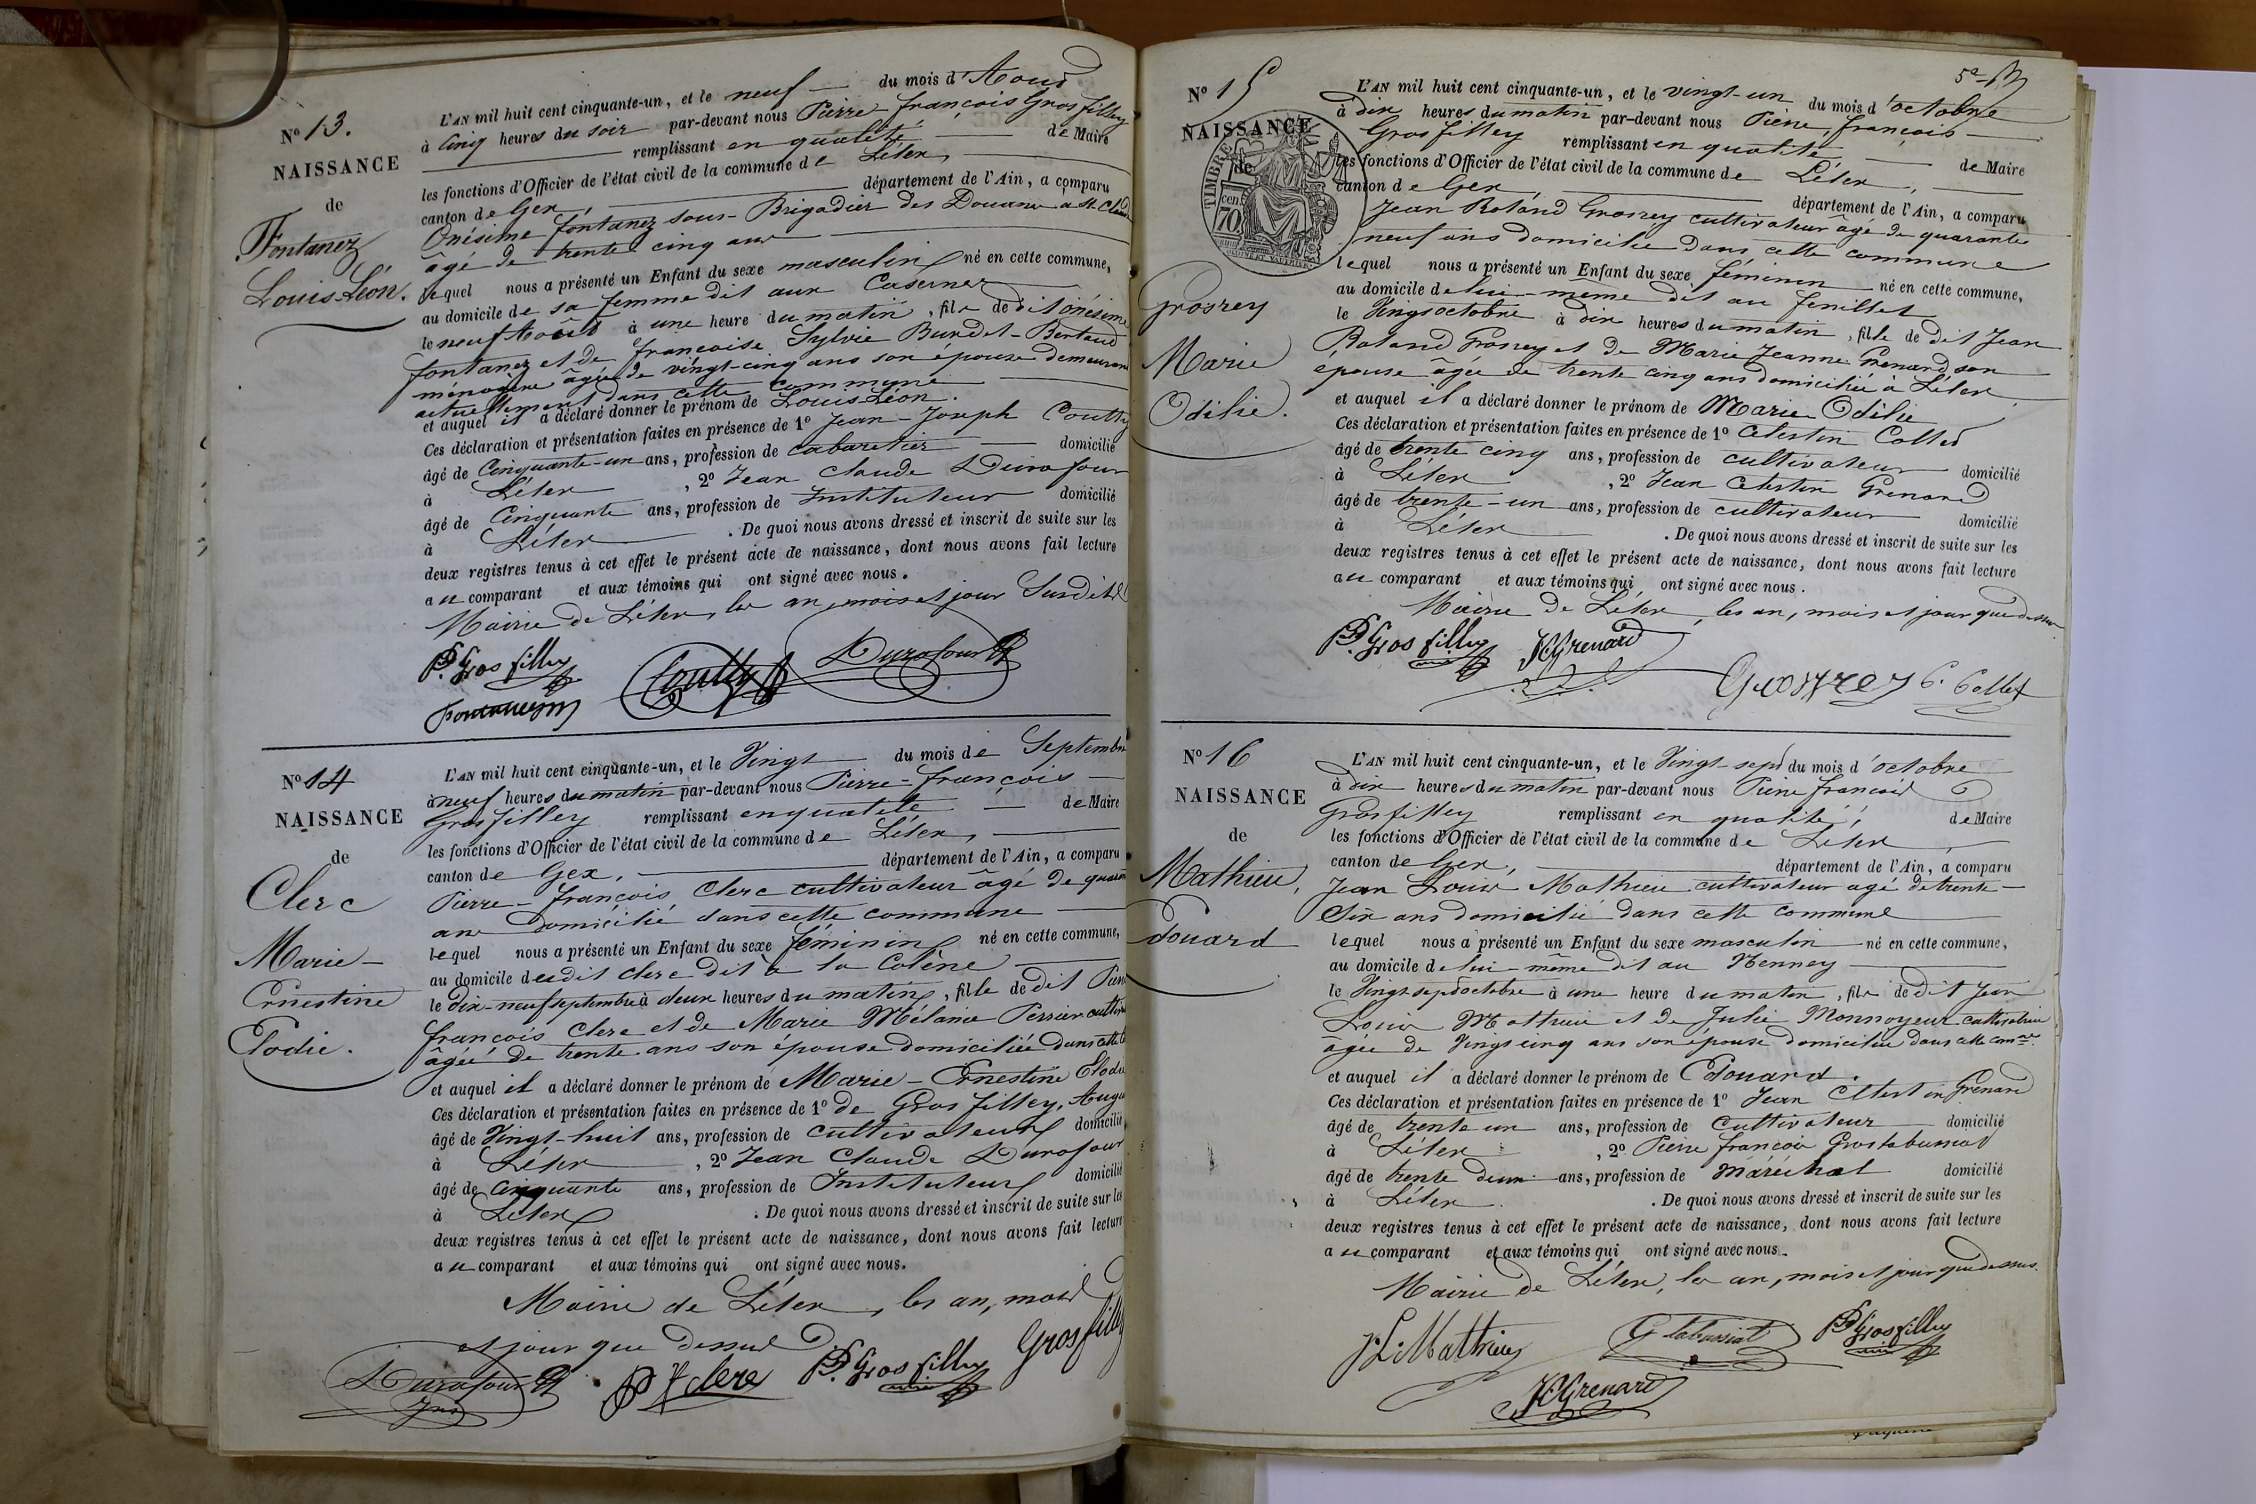 N° 13.
NAISSANCE
de
Fontanez
Louis Léon.
L'AN mil huit cent cinquante-un, et le neuf du mois d'Aout
à Cinq heures du soir par-devant nous Pierre-françois Grosfilley
remplissant en qualité de Maire
les fonctions d'Officier de l'état civil de la commune de Lélex,
canton de Gex, département de l'Ain, a comparu
Onésime fontanez sous-Brigadier des Douanes a St. Claude
âgé de trente cinq ans
lequel nous a présenté un Enfant du sexe masculin né en cette commune,
au domicile de sa femme dit aux Casernes
le neuf Août à une heure du matin, fils de dit onésime
fontanez et de françoise Sylvie Burdet-Bertaud
ménagère âgée de vingt-cinq ans son épouse demeurant
actuellement dans cette commune
et auquel il a déclaré donner le prénom de Louis Léon.
Ces déclaration et présentation faites en présence de 1° Jean-Joseph Coutty
âgé de Cinquante-un ans, profession de cabaretier domicilié
à Lélex, 2° Jean Claude Durafour
âgé de Cinquante ans, profession de Instituteur domicilié
à Lélex. De quoi nous avons dressé et inscrit de suite sur les
deux registres tenus à cet effet le présent acte de naissance, dont nous avons fait lecture
au comparant et aux témoins qui ont signé avec nous.
Mairie de Lélex, les an, mois et jour Susdits
P. F. Gros filley Coutty Durafour
fontanez
N° 14
NAISSANCE
de
Clerc
Marie-
Ernestine
Elodie.
L'AN mil huit cent cinquante-un, et le Vingt du mois de Septembre
à neuf heures du matin par-devant nous Pierre-françois
Grosfilley remplissant en qualité de Maire
les fonctions d'Officier de l'état civil de la commune de Lélex,
canton de Gex, département de l'Ain, a comparu
Pierre-françois Clerc cultivateur âgé de quarante
ans domicilié dans cette commune
lequel nous a présenté un Enfant du sexe féminin né en cette commune,
au domicile dudit clerc dit à la Colène
le Dix-neuf septembre à deux heures du matin, fille de dit Pierre
françois clerc et de Marie Mélanie Perrier
âgée de trente ans son épouse domiciliée dans cette
et auquel il a déclaré donner le prénom de Marie-Ernestine Elodie
Ces déclaration et présentation faites en présence de 1° de Gros filley,
âgé de Vingt-huit ans, profession de cultivateur domicilié
à Lélex, 2° Jean Claude Durafour
âgé de Cinquante ans, profession de Instituteur domicilié
à Lélex. De quoi nous avons dressé et inscrit de suite sur les
deux registres tenus à cet effet le présent acte de naissance, dont nous avons fait lecture
au comparant et aux témoins qui ont signé avec nous.
Mairie de Lélex, les an, mois
et jour que dessus
Durafour P F clerc P. F. Gros filley Grosfilley
5e
N° 15
NAISSANCE
de
TIMBRE
cen.
70
Grosrey
Marie
Odélie.
L'AN mil huit cent cinquante-un, et le vingt-un du mois d'octobre
à dix heures du matin par-devant nous Pierre, françois
Grosfilley remplissant en qualité, de Maire
les fonctions d'Officier de l'état civil de la commune de Lélex,
canton de Gex, département de l'Ain, a comparu
Jean Roland Grosrey cultivateur âgé de quarante
neuf ans domicilié dans cette commune
lequel nous a présenté un Enfant du sexe féminin né en cette commune,
au domicile de lui-même dit au fenillet
le Vingt octobre à dix heures du matin, fille de dit Jean
Roland Grosrey et de Marie Jeanne Grenard son
épouse âgée de trente cinq ans domiciliée à Lélex
et auquel il a déclaré donner le prénom de Marie Odélie
Ces déclaration et présentation faites en présence de 1° Célestin Collet
âgé de trente cinq ans, profession de cultivateur domicilié
à Lélex, 2° Jean Célestin Grenard
âgé de trente-un ans, profession de cultivateur domicilié
à Lélex. De quoi nous avons dressé et inscrit de suite sur les
deux registres tenus à cet effet le présent acte de naissance, dont nous avons fait lecture
au comparant et aux témoins qui ont signé avec nous.
Mairie de Lélex, les an, mois et jour que dessus
P. F. Gros filley JCGrenard
Grosrey C. Collet
N° 16
NAISSANCE
de
Mathieu,
Edouard
L'AN mil huit cent cinquante-un, et le Vingt-sept du mois d'octobre
à dix heures du matin par-devant nous Pierre françois
Grosfilley remplissant en qualité, de Maire
les fonctions d'Officier de l'état civil de la commune de Lélex,
canton de Gex, département de l'Ain, a comparu
Jean Louis Mathieu cultivateur agé de trente-
Six ans domicilié dans cette commune
lequel nous a présenté un Enfant du sexe masculin né en cette commune,
au domicile de lui-même dit au
le Vingt sept octobre à une heure du matin, fils de dit Jean
Louis Mathieu et de Julie Monnoyeur cultivatrice
âgée de Vingt cinq ans son épouse domiciliée dans cette comne.
et auquel il a déclaré donner le prénom de Edouard.
Ces déclaration et présentation faites en présence de 1° Jean Célestin Grenard
âgé de trente un ans, profession de Cultivateur domicilié
à Lélex, 2° Pierre françois Groslabussiat
âgé de trente deux ans, profession de Maréchal domicilié
à Lélex. De quoi nous avons dressé et inscrit de suite sur les
deux registres tenus à cet effet le présent acte de naissance, dont nous avons fait lecture
au comparant et aux témoins qui ont signé avec nous.
Mairie de Lélex, les an, mois et jour que dessus.
J L Mathieu G labussiat P. F. Grosfilley
JCGrenard